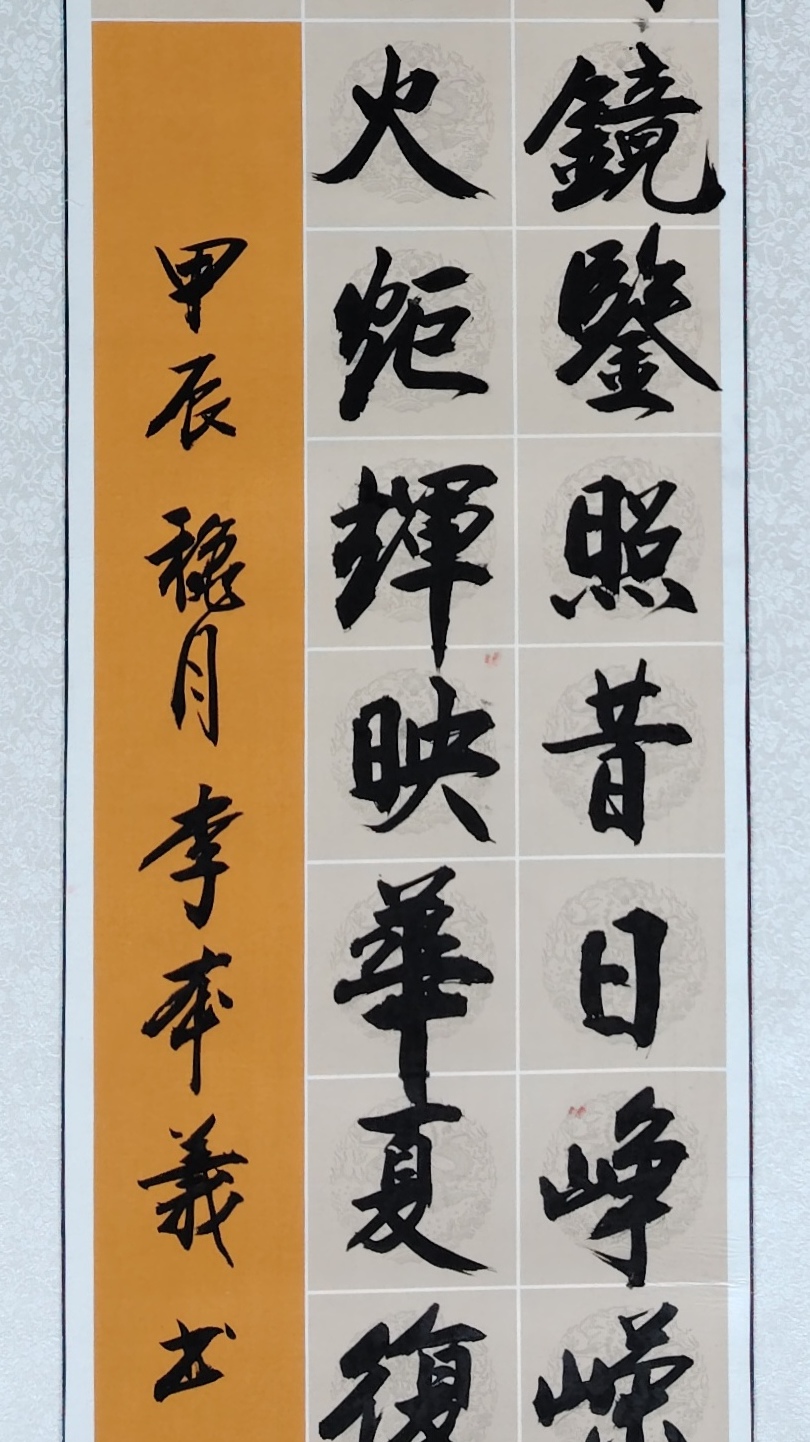 鏡鑒照昔日峥嵘
火炬輝映華夏復
甲辰穐月李奉義书